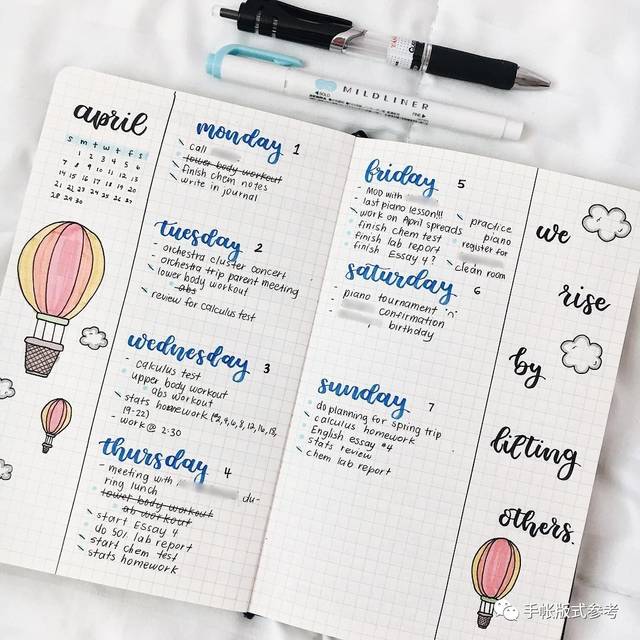 MILDLINER
april
s m t w t f s
1 2 3 4 5 6
7 8 9 10 11 12 13
14 15 16 17 18 19 20
21 22 23 24 25 26 27
28 29 30
monday 1
call
lower body workout
finish chem notes
write in journal
tuesday 2
- orchestra cluster concert
- orchestra trip parent meeting
lower body workout
abs
review for calculus test
wednesday 3
- calculus test
upper body workout
abs workout
stats homework
19-22)
- work @ 2:30
thursday 4
- meeting with du-
ring lunch
lower body workout
ab workout
start Essay 4
do 50% lab report
start chem test
stats homework
friday 5
- MOD with
last piano lesson!!!
work on April spreads
finish chem test
finish lab report
finish Essay 4?
practice
piano
register for
clean room
saturday 6
- piano tournament "n"
- confirmation
- birthday
sunday 7
do planning for spring trip
calculus homework
English essay #4
stats review
chem lab report
we
rise
by
lifting
others.
手帐版式参考